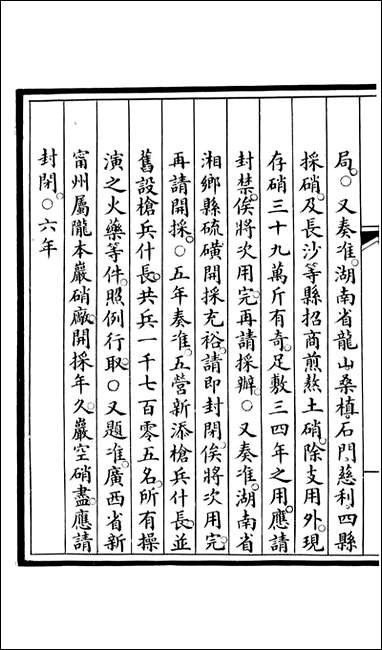 局。○又奏准。湖南省龍山。桑植。石門。慈利。四縣
採硝。及長沙等縣招商煎熬土硝。除支用外。現
存硝三十九萬斤有奇。足敷三四年之用。應請
封禁。俟將次用完。再請採辦。○又奏准。湖南省
湘鄉縣硫磺開採充裕。請即封閉。俟將次用完。
再請開採。○五年奏准。五營新添槍兵什長。並
舊設槍兵什長。共兵一千七百零五名。所有操
演之火藥等件。照例行取。○又題准。廣西省新
甯州屬隴本巖硝廠。開採年久。巖空硝盡。應請
封閉。○六年